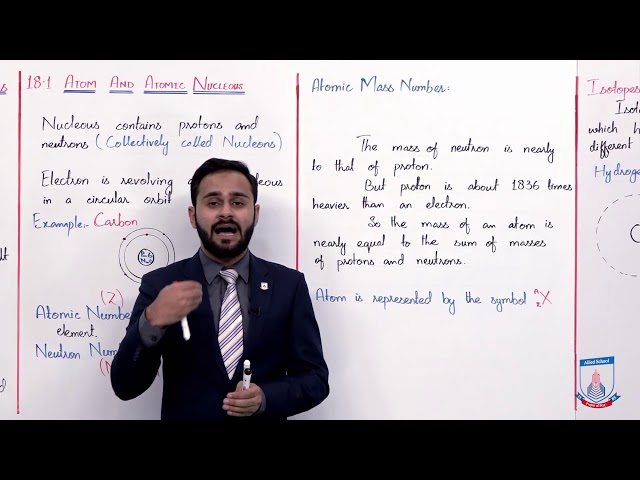 18.1 Atom And Atomic Nucleous
Nucleous contains protons and
neutrons (Collectively called Nucleons)
Electron is revolving
in a circular orbit
Example:- Carbon
(Z)
Atomic Number
element.
Neutron Num
(N
Atomic Mass Number:
The mass of neutron is nearly
to that of proton.
But proton is about 1836 times
heavier than an electron.
So the mass of an atom is
nearly equal to the sum of masses
of protons and neutrons.
Atom is represented by the symbol A Z X
Isotopes
Isot
which h
different
Hydroge
Allied School